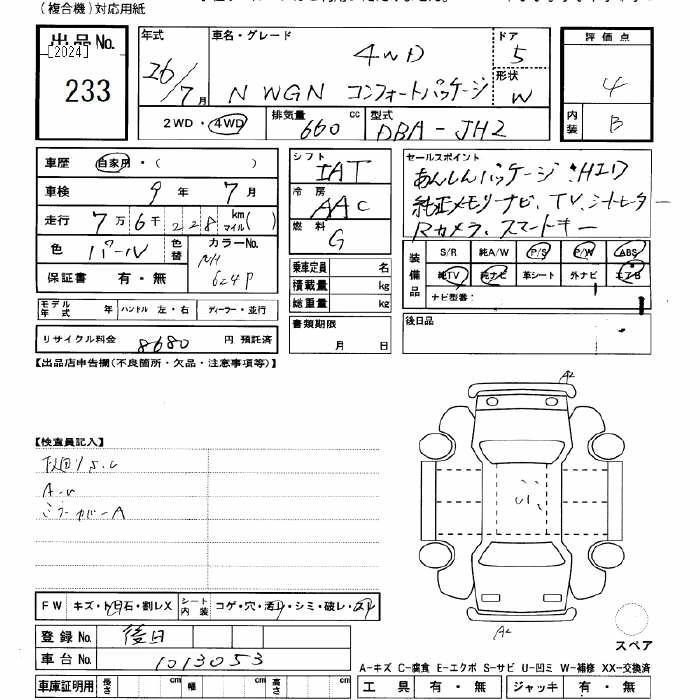 (複合機)対応用紙
出品No.
[2024]
233
年式
26/7月
車名・グレード
4WD
N WGN コンフォートパッケージ
ドア
5
形状
W
評価点
4
内装
B
2WD・4WD
排気量 660 cc
型式 DBA-JH2
車歴 自家用・( )
車検 9年 7月
走行 7万6千228 km マイル( )
色 パール
色替
カラーNo. NH 624P
保証書 有・無
シフト IAT
冷房 AAC
燃料 G
乗車定員 名
積載量 kg
総重量 kg
書類期限
月 日
セールスポイント
あんしんパッケージ、HID
純正メモリーナビ、TV、シートヒーター
Rカメラ、スマートキー
装備品
S/R 純A/W P/S P/W ABS
純TV 純ナビ 革シート 外ナビ エアB
ナビ型番:
後日品
モデル年式 年 ハンドル 左・右 ディーラー・並行
リサイクル料金 8680 円 預託済
【出品店申告欄(不良箇所・欠品・注意事項等)】
【検査員記入】
A-U
ミラーカバーA
A2
A2
FW キズ・飛石・割レX
シート内装 コゲ・穴・汚れ・シミ・破レ・スレ
登録No. 後日
車台No. 1013053
車庫証明用 長さ cm 幅 cm 高さ cm
スペア
A-キズ C-腐食 E-エクボ S-サビ U-凹ミ W-補修 XX-交換済
工具 有・無 ジャッキ 有・無